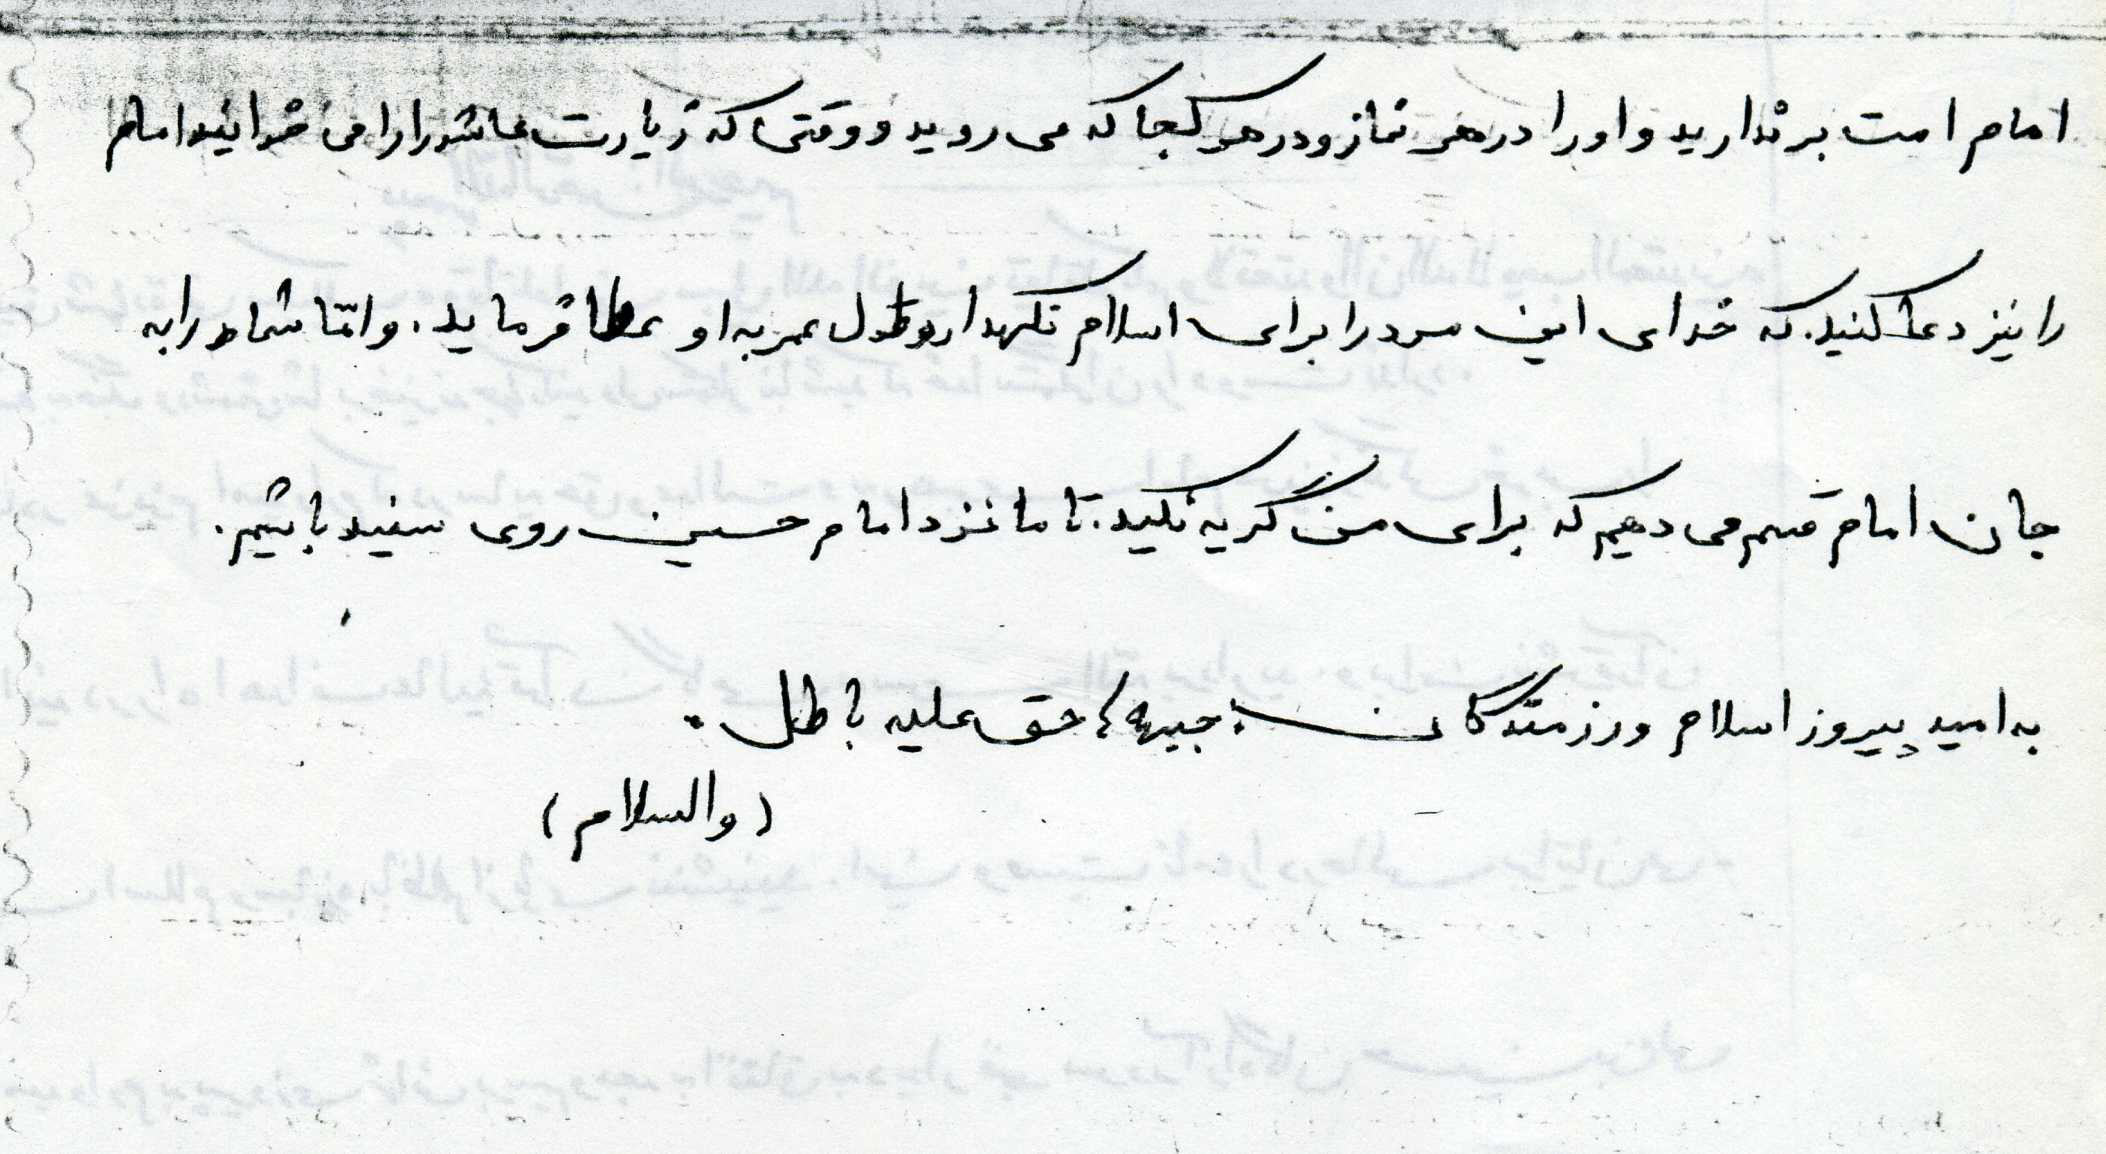 امام امت برندارید و او را در هر نماز و در هر کجا که می روید و وقتی که زیارت عاشورا را می خوانید امام
را نیز دعا کنید. که خدای این مرد را برای اسلام نگهدار و طول عمر به او عطا فرماید. و امّا شما را به
جان امام قسم می دهیم که برای من گریه نکید. تا ما نزد امام حسین روی سفید باشیم.
به امید پیروز اسلام ورزمندگان جبهه حق علیه باطل.
(والسلام)